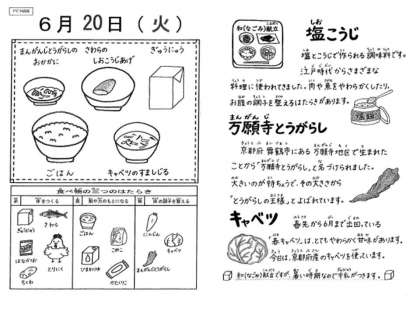 6月20日(火)
まんがんじとうがらしの
おかかに
さわらの
しおこうじあげ
ぎゅうにゅう
ごはん
キャベツのすましじる
食べ物の三つのはたらき
ぎゅうにゅう
さわら
はながつお
とりにく
ちくわ
ごはん
こむぎこ
かたくりこ
にんじん
キャベツ
まんがんじとうがらし
和(なごみ)献立
しお
塩こうじ
塩とこうじで作られる調味料です。
江戸時代からさまざまな
料理に使われてきました。肉や魚をやわらかくしたり、
お腹の調子を整えるはたらきがあります。
まんがんじ
万願寺とうがらし
京都府舞鶴市にある万願寺地区で生まれた
ことから「万願寺とうがらし」と名づけられました。
大きいのが特ちょうで、その大きさから
「とうがらしの王様」とよばれています。
キャベツ
春先から6月まで出回っている
「春キャベツ」は、とてもやわらかく甘味があります。
今日は、京都府産のキャベツを使います。
和(なごみ)献立ですが、暑い時期なので牛乳がつきます。